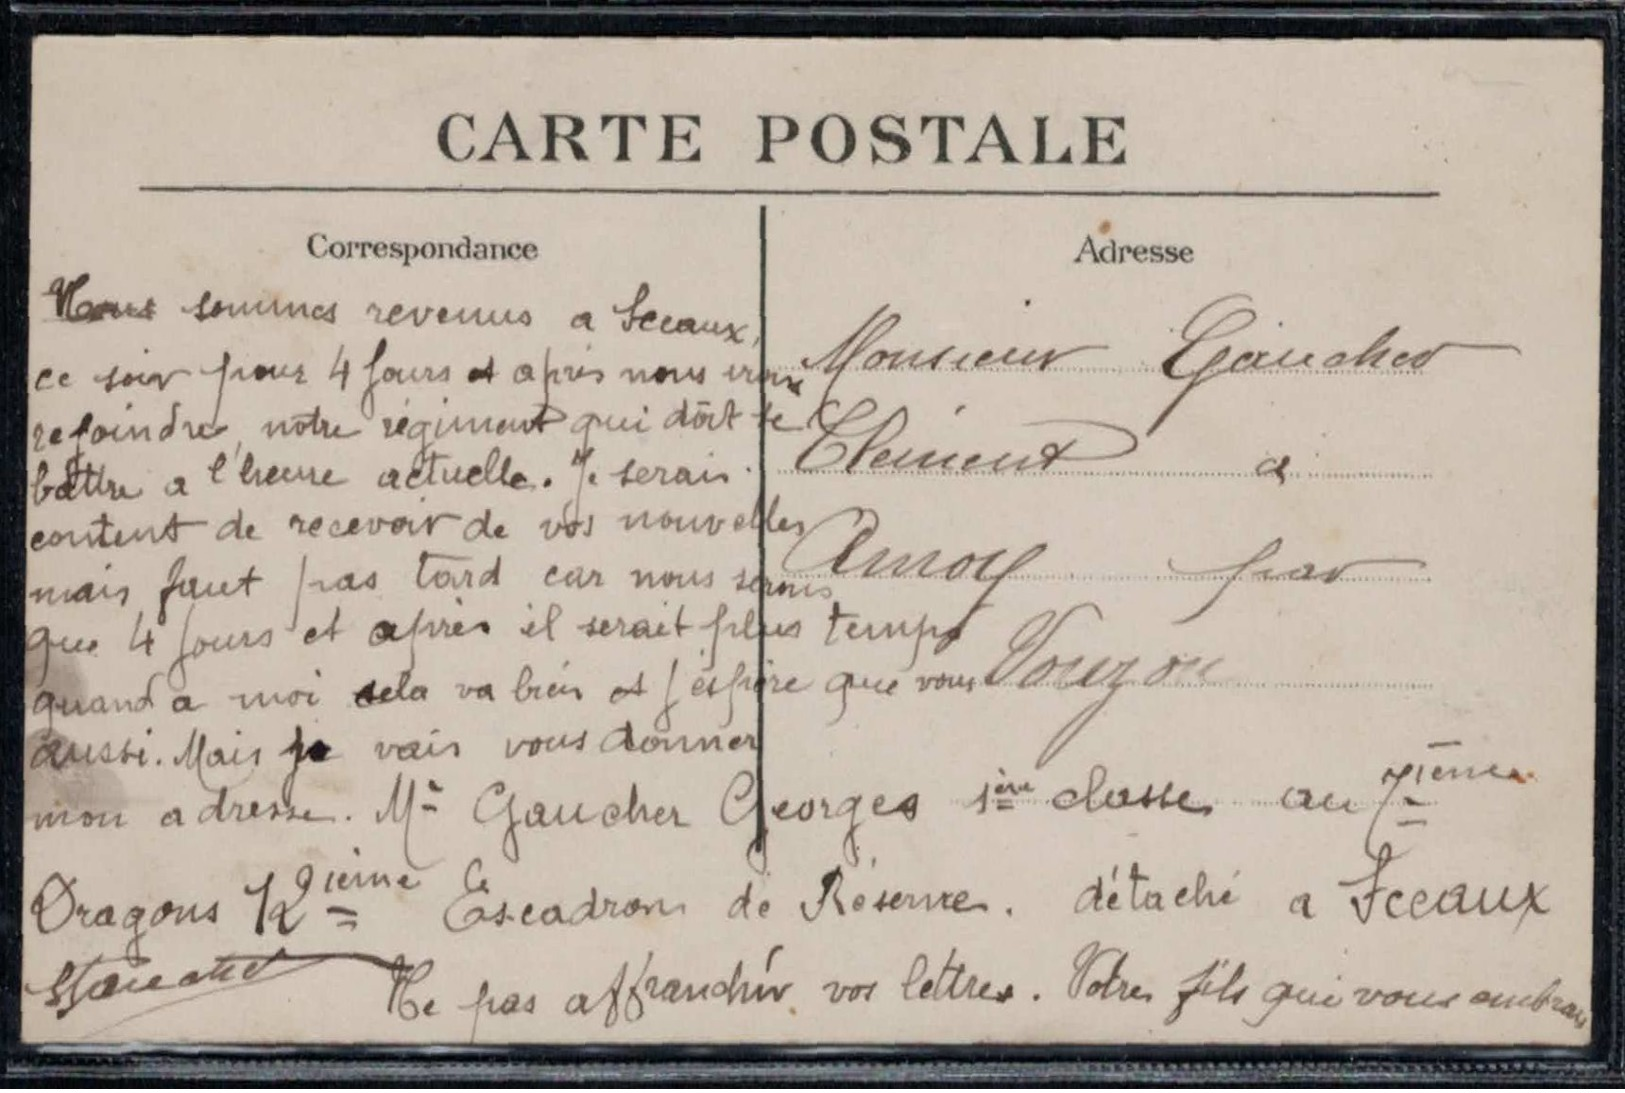 CARTE POSTALE
Correspondance
Nous sommes revenus a Sceaux,
ce soir pour 4 jours et après nous irons
rejoindre notre régiment qui dôit se
battre a l'heure actuelle. Je serais
content de recevoir de vos nouvelles
mais faut pas tard car nous serons
que 4 jours et après il serait plus temps
quand a moi cela va bien et j'éspère que vous
aussi. Mais je vais vous donner
mon adresse. Mr Gaucher Georges 1ère classe au 7ième
Dragons 12ième Escadron de Réserve. détaché a Sceaux
Gaucher
Ne pas affranchir vos lettres. Votre fils qui vous embrass
Adresse
Monsieur Gaucher
Clément a
par
Vouzon